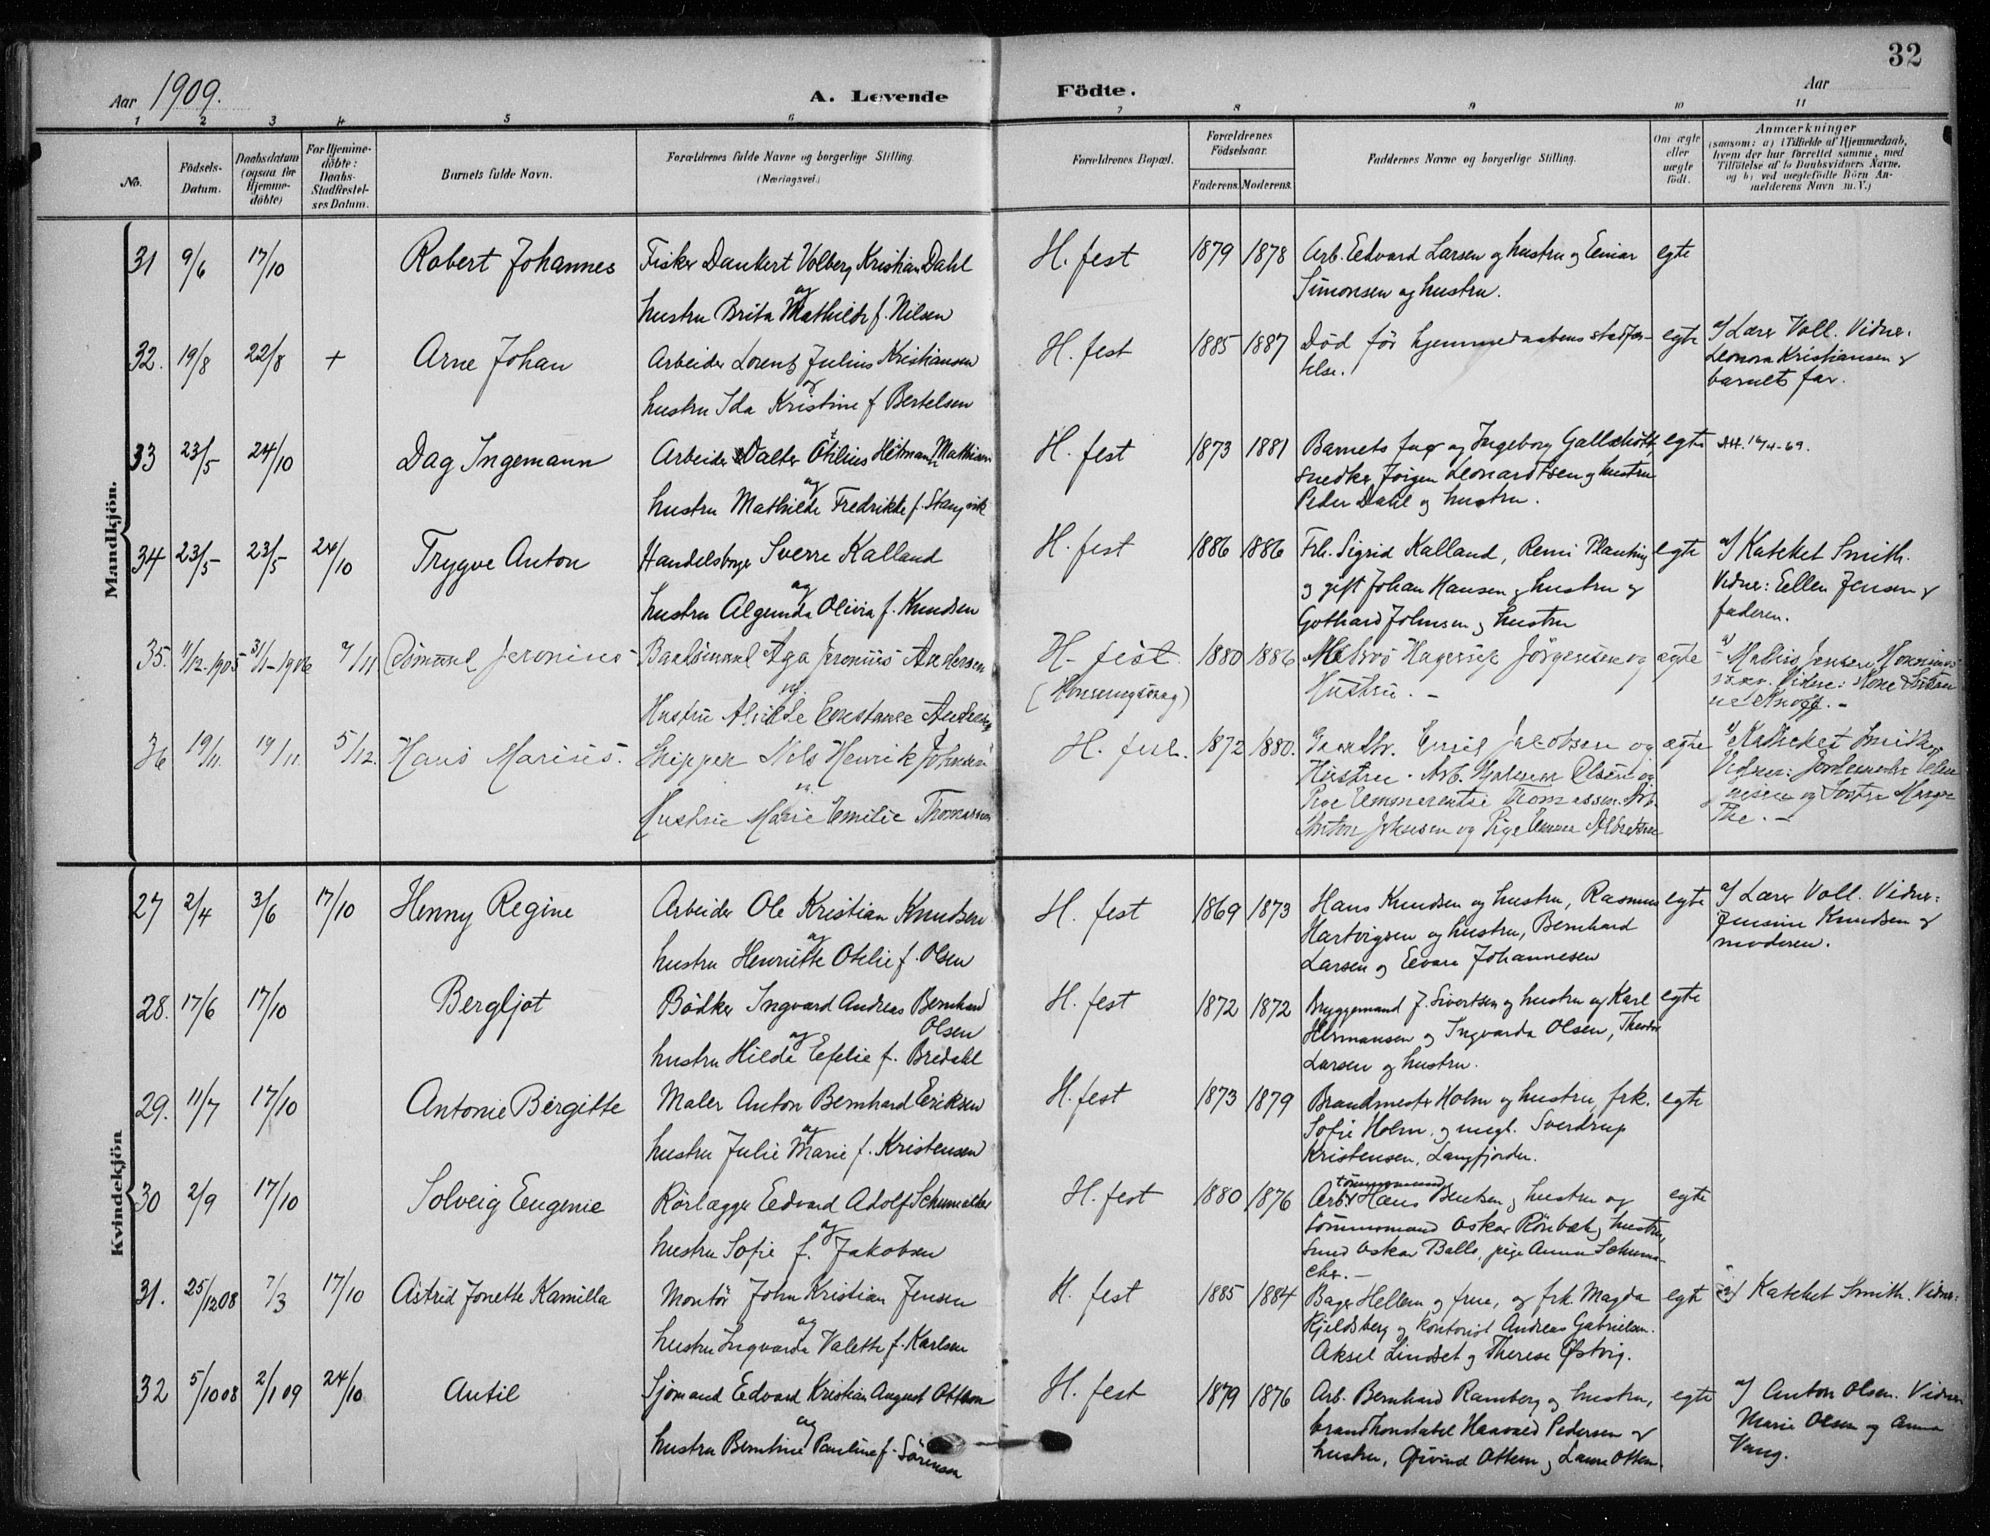 32
Aar 1909. A. Levende Födte. Aar
1 2 3 4 5 6 7 8 9 10 11
No.
Födsels-Datum.
Daabsdatum (ogsaa for Hjemme-döbte)
For Hjemme-döbte: Daabs-Stadfæstel-ses Datum.
Barnets fulde Navn.
Forældrenes fulde Navne og borgerlige Stilling.
(Næringsvei.)
Forældrenes Bopæl.
Forældrenes Födselsaar.
Faderens. Moderens.
Faddernes Navne og borgerlige Stilling.
Om ægte eller uægte födt.
Anmærkninger
(saasom: a) i Tilfælde af Hjemmedaab,
hvem der har forrettet samme, med
Tilföielse af to Daabsvidners Navne,
og b) ved uægtefödte Börn An-
melderens Navn m. V.)
Mandkjön.
31 9/6 17/10 Robert Johannes Fisker Dankert Volberg Kristian Dahl H. fest 1879 1878 Arb. Edvard Larsen og hustru og Einar egte
og
hustru Brita Mathilde f. Nilsen Simonsen og hustru.
32. 19/8 22/8 + Arne Johan Arbeider Lorents Julius Kristiansen H. fest 1885 1887 Död för hjemmedaabens stadfæs- egte a/ Lærer Voll. Vidner:
og
hustru Ida Kristine f Bertelsen telse. Leonora Kristiansen &
barnets far.
33 23/5 24/10 Dag Ingemann Arbeider Valter Otilius Hitmann Mathisen H. fest 1873 1881 Barnets far og Ingeborg
og
hustru Mathilde Fredrikke f. Stangvik egte
snedker Jörgen Leonardtsen og hustru
Peder Dahl og hustru.
34 23/5 23/5 24/10 Trygve Anton Handelsborger Sverre Kalland H. fest 1886 1886 Frk. Sigrid Kalland, Remi egte a/ Kateket Smith.
og
hustru Algunda Olivia f. Knudsen og gift Johan Hansen og hustru og Vidner: Ellen Jensen &
Gothard Johnsen og hustru faderen.
35. 11/12-1905 31/1-1906 Jeronius Baadsmand Aga Jeronius Andersen H. fest 1880 1886 Jörgensen og ægte
og
Hustru Constance Hustru. -
36 19/11. 19/11 5/12. Hans Marius. Skipper Nils Henrik Johnsen H. fest. 1872 1880. Emil Jakobsen og ægte a/ Kateket Smith
og
Hustru Marie Emilie Thomassen Hustru. Arb. Hjalmar Olsen og
Pige Emmerentse Thomassen. Arb.
Anton Johnsen og Pige
Kvindekjön
27 2/4 3/6 17/10 Henny Regine Arbeider Ole Kristian Knudsen H. fest 1869 1873 Hans Knudsen og hustru, Rasmus egte a/ Lærer Voll. Vidner:
og
hustru Henriette Otelie f. Olsen Hartvigsen og hustru, Bernhard Jensine Knudsen &
Larsen og Johannesen moderen.
28. 17/6 17/10 Bergljot Bödker Ingvard Andreas Bernhard H. fest 1872 1872 Bryggemand J. Sivertsen og hustru og Karl egte
Olsen
og
hustru Hilda f. Bredahl Hermansen og Ingvarda Olsen, Theodor
Larsen og hustru.
29. 11/7 17/10 Antonie Birgitte Maler Anton Bernhard Eriksen H. fest 1873 1879 Brandmester Holm og hustru, frk. egte
og
hustru Julie Marie f. Kristensen Sofie Holm og ungk. Sverdrup
Kristensen, Langfjorden.
30 2/9 17/10 Solveig Eugenie Rörlægger Edvard Adolf Schumacher H. fest 1880 1876 Arb. Hans Bentsen og hustru og egte
tömmermand
og
hustru Sofie f. Jakobsen tömmermand Oskar Rönbæk og hustru,
smed Oskar Balls, pige Anna Schuma-
cher. -
31. 25/12 08 7/3 17/10 Astrid Jonette Kamilla Montör John Kristian Jensen H. fest 1885 1884 Bager Hellem og frue, og frk. Magda egte a/ Kateket Smith. Vidner:
og
hustru Ingvarda Valette f. Karlsen Kjeldsberg og kontorist Andreas Gabrielsen.
Aksel Lindset og Therese Østvig.
32 5/10 08 2/1 09 24/10 Antil Sjömand Edvard Kristian August Ottem H. fest 1879 1876 Arb. Bernhard Ramberg og hustru, egte a/ Anton Olsen. Vidner
og
hustru Berntine Pauline f. Sörensen brandkonstabel Haavald Pedersen & Marie Olsen og Anna
hustru, Øivind Ottem og Laura Ottem. Vang.